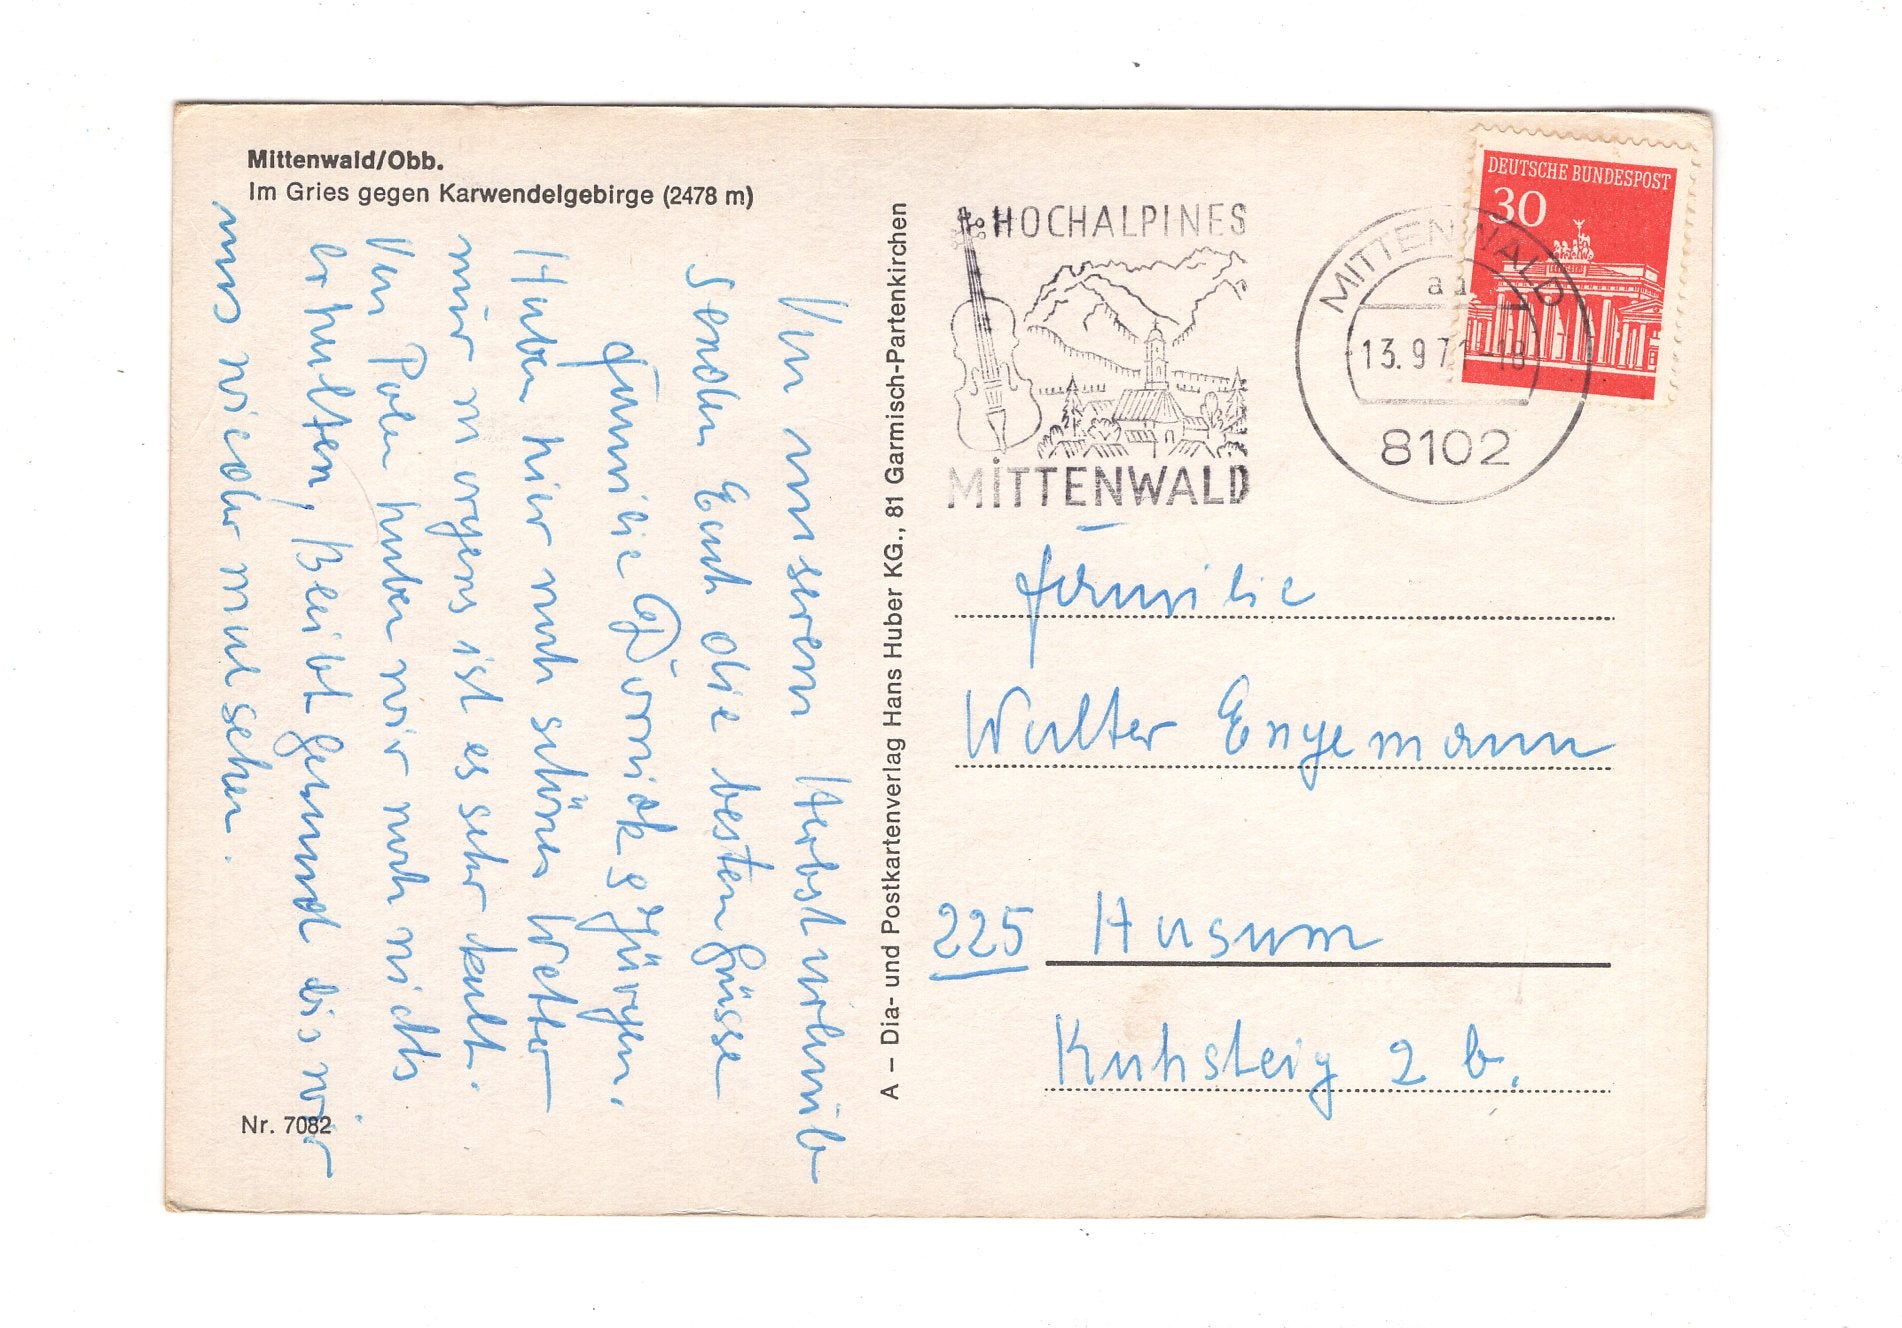 Mittenwald/Obb.
Im Gries gegen Karwendelgebirge (2478 m)
Von unseren Herbsturlaub
senden Euch die besten Grüsse
Familie
Haben hier noch schönes Wetter
nur morgens ist es sehr kalt.
Von Polen haben wir noch nichts
erhalten, Bleibt gesund bis wir
uns wieder mal sehen.
Nr. 7082
A – Dia- und Postkartenverlag Hans Huber KG., 81 Garmisch-Partenkirchen
HOCHALPINES
MITTENWALD
DEUTSCHE BUNDESPOST
30
MITTENWALD
13.9.71-18
8102
Familie
Walter Engemann
225 Husum
Kuhsteig 2 b.